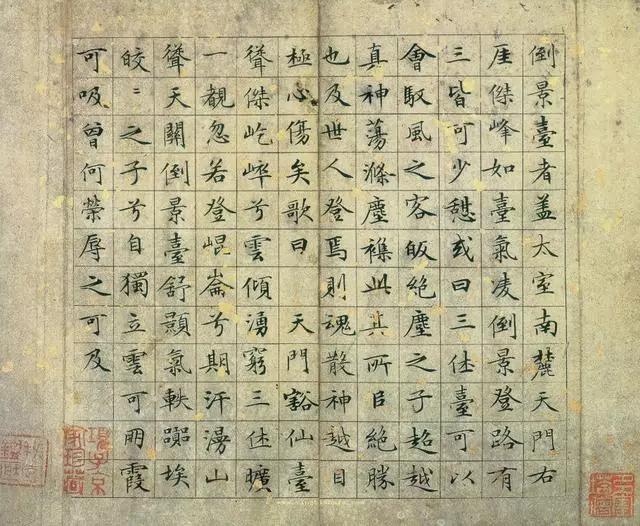 倒景臺者蓋太室南麓天門右
厓傑峰如臺氣凌倒景登路有
三皆可少憇或曰三休臺可以
會馭風之客皈絶塵之子超越
真神蕩滌塵襟此其所㠯絶勝
也及世人登焉則魂散神越目
極心傷矣歌曰 天門豁仙臺
聳傑屹崒兮雲傾湧窮三休曠
一覩忽若登崐崙兮期汗漫山
聳天關倒景臺舒顥氣軼囂埃
皎〻之子兮自獨立雲可朋霞
可吸曾何榮辱之可及